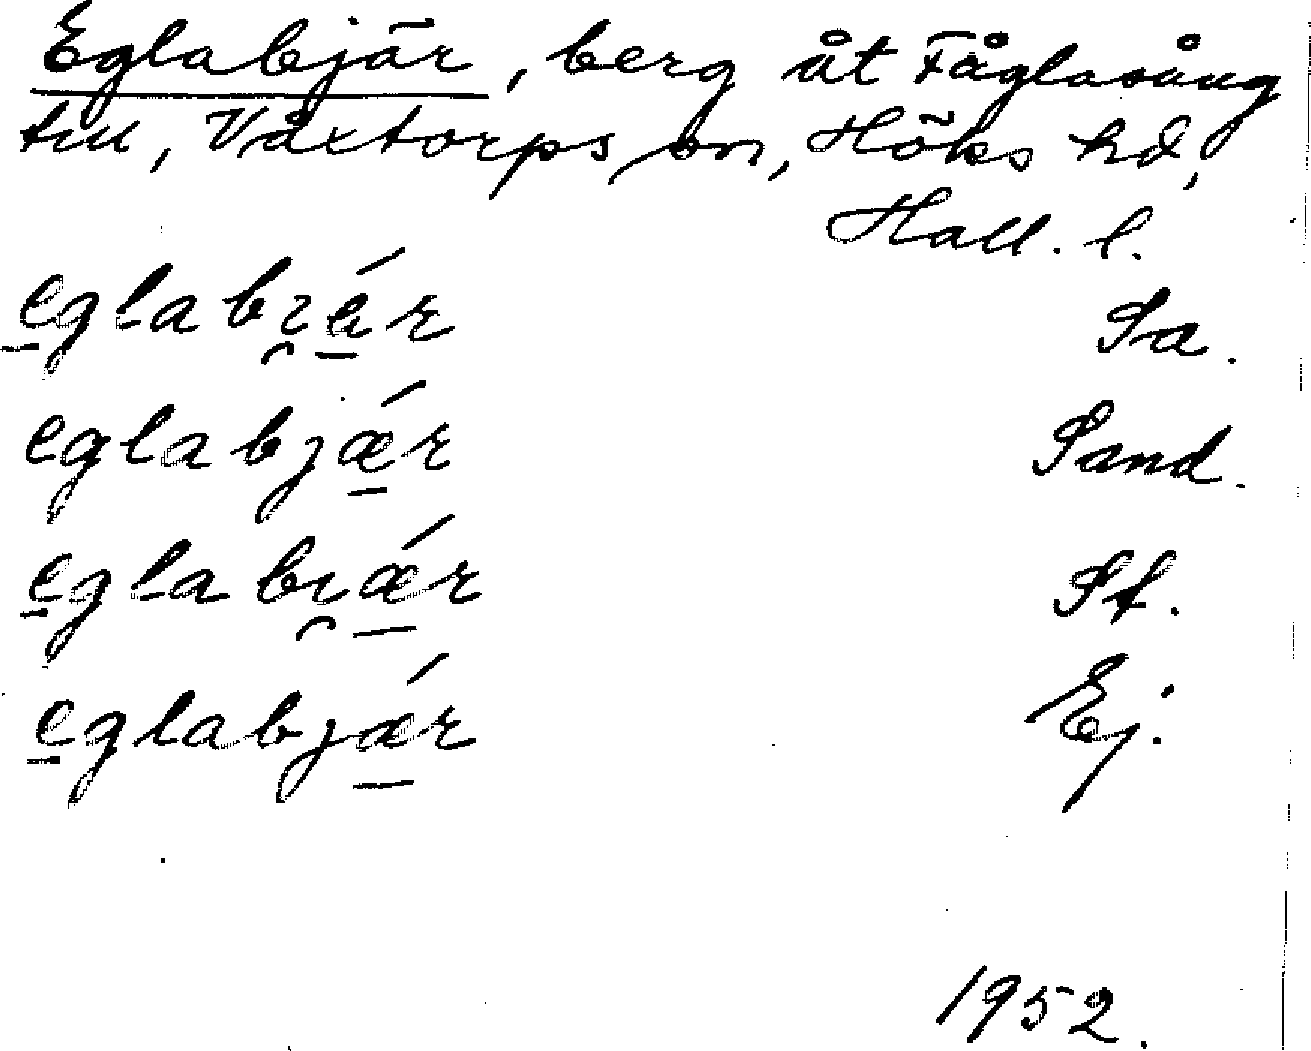 Eglabjär, berg åt Fåglasång
till, Våxtorps sn, Höks hd,
Hall. l.
eglabɪ̯ǽr Sa.
eglabjǽr Sand.
eglabɪ̯ǽr St.
eglabjǽr Ej.
1952.